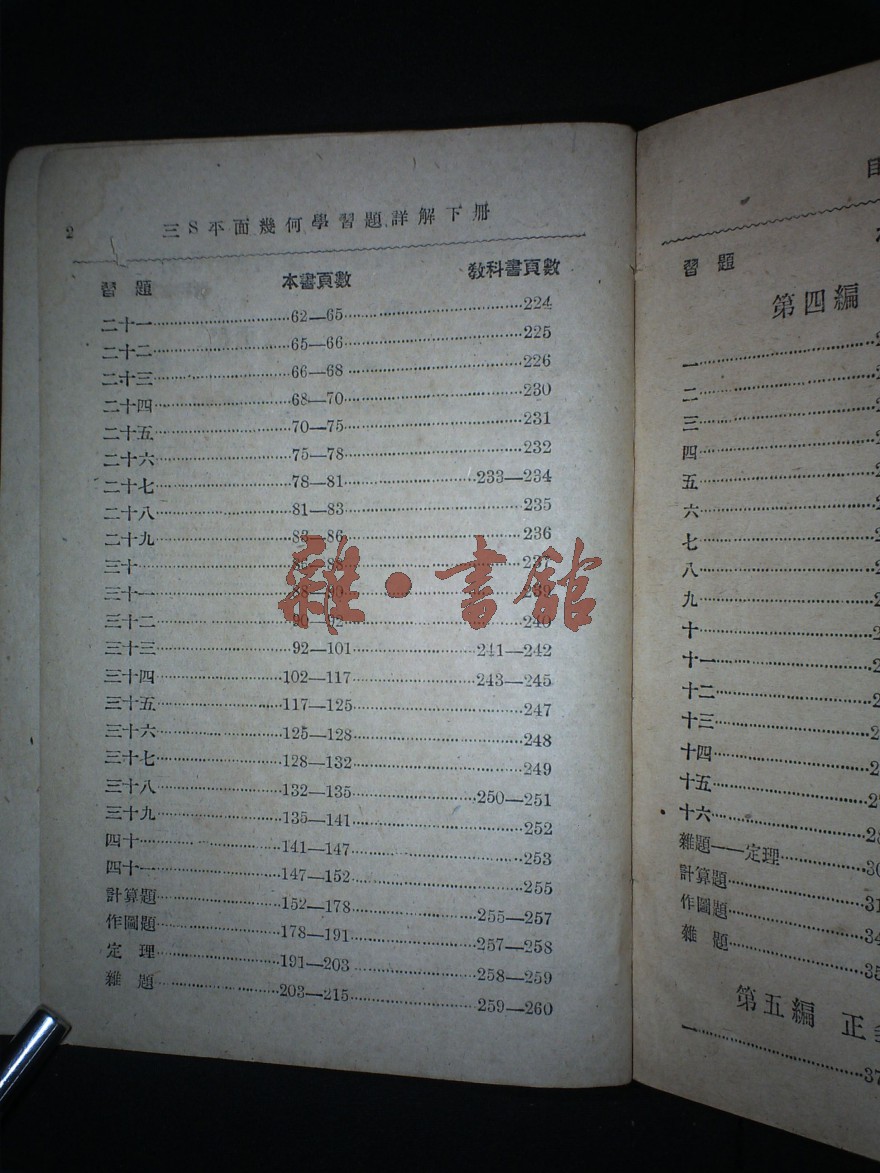 2 三S平面幾何學習題詳解下册
習題 本書頁數 教科書頁數
二十一 62—65 224
二十二 65—66 225
二十三 66—68 226
二十四 68—70 230
二十五 70—75 231
二十六 75—78 232
二十七 78—81 233—234
二十八 81—83 235
二十九 83—86 236
三十 86—88 237
三十一 88—90 239
三十二 90—92 240
三十三 92—101 241—242
三十四 102—117 243—245
三十五 117—125 247
三十六 125—128 248
三十七 128—132 249
三十八 132—135 250—251
三十九 135—141 252
四十 141—147 253
四十一 147—152 255
計算題 152—178 255—257
作圖題 178—191 257—258
定理 191—203 258—259
雜題 203—215 259—260
雜·書館
習題
第四編
一
二
三
四
五
六
七
八
九
十
十一
十二
十三
十四
十五
十六
雜題——定理
計算題
作圖題
雜題
第五編 正
一